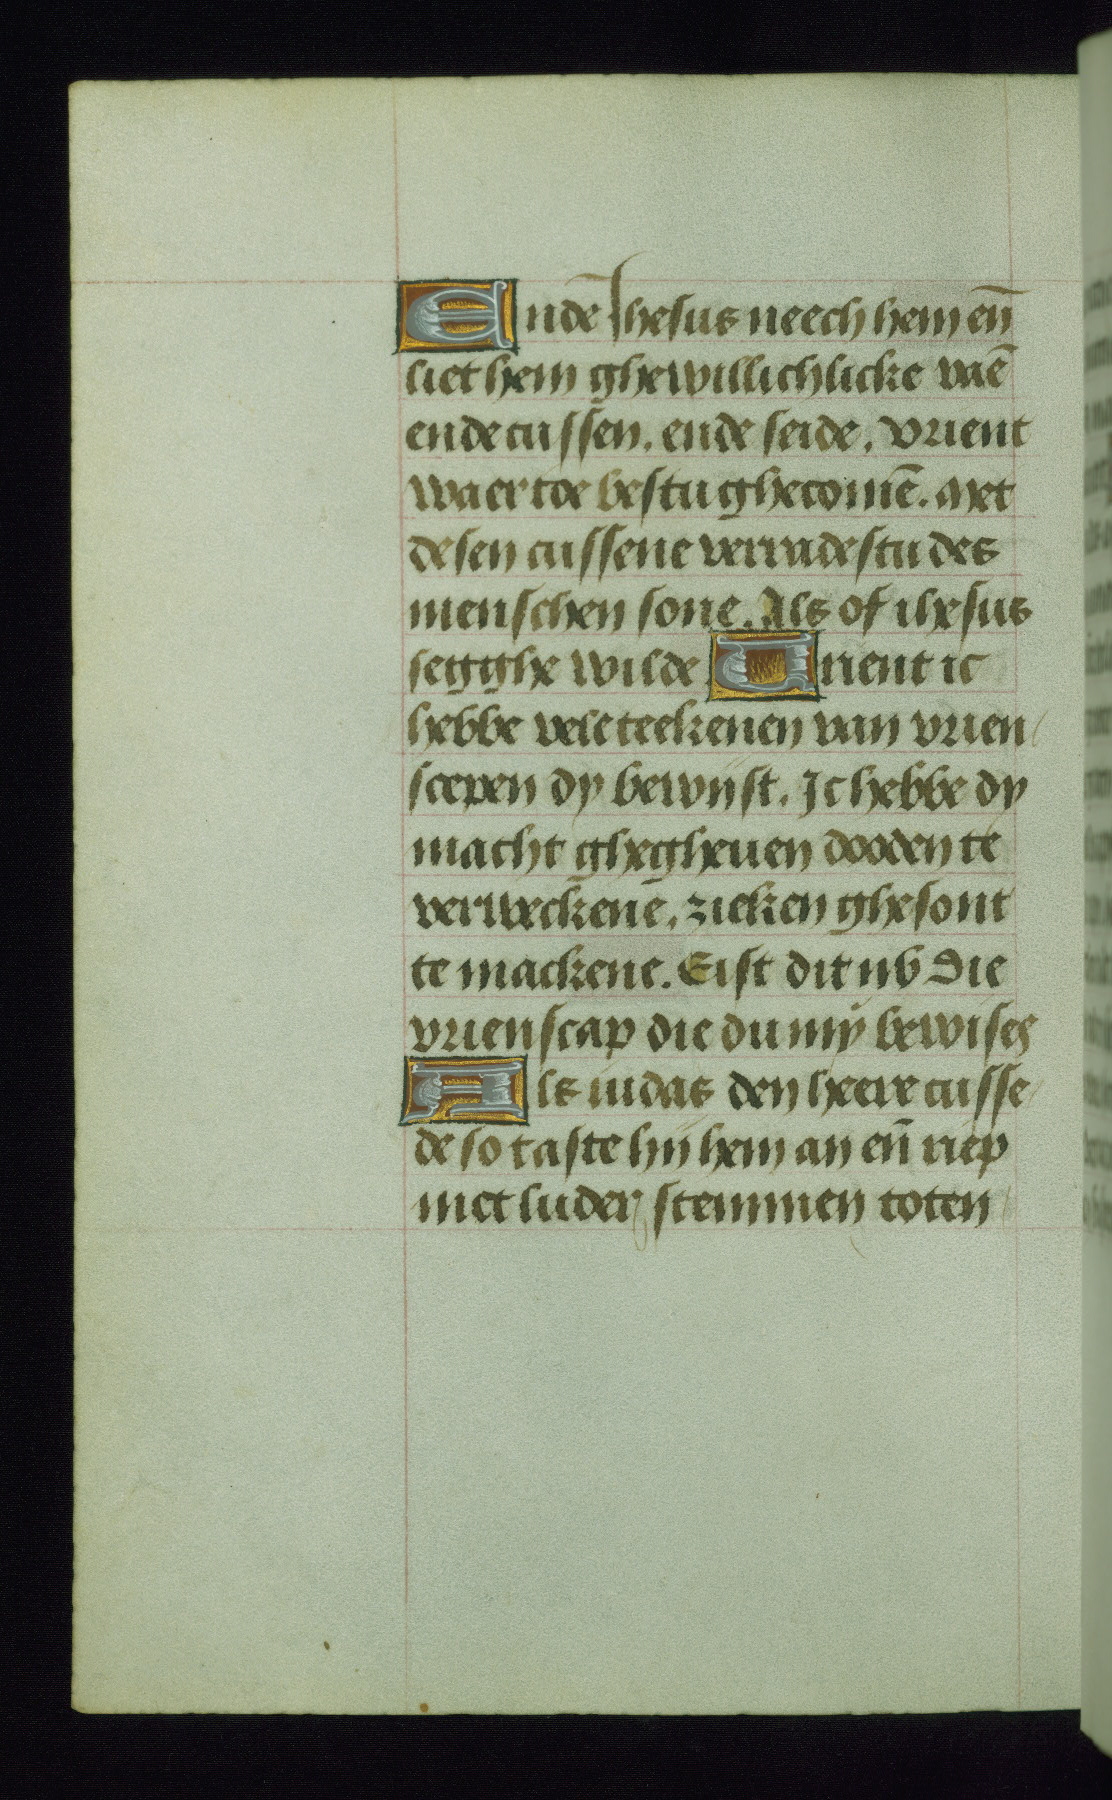 Ende Ihesus neech hem en̄
liet hem ghewillichlicke vaē
ende cussen. ende seide. vrient
waer toe bestu ghecomē. Met
desen cussene verradestu des
menschen sone. Als of ihesus
segghe wilde Vrient ic
hebbe vele teekenen van vrien/
scepen dy bewijst. Ic hebbe dy
macht ghegheuen dooden te
verweckene. zieken ghesont
te mackene. Eist dit nv Die
vrienscap die du mÿ bewises
Als iudas den heere cusse/
de so taste hij hem an en̄ riep
met luder stemmen toten